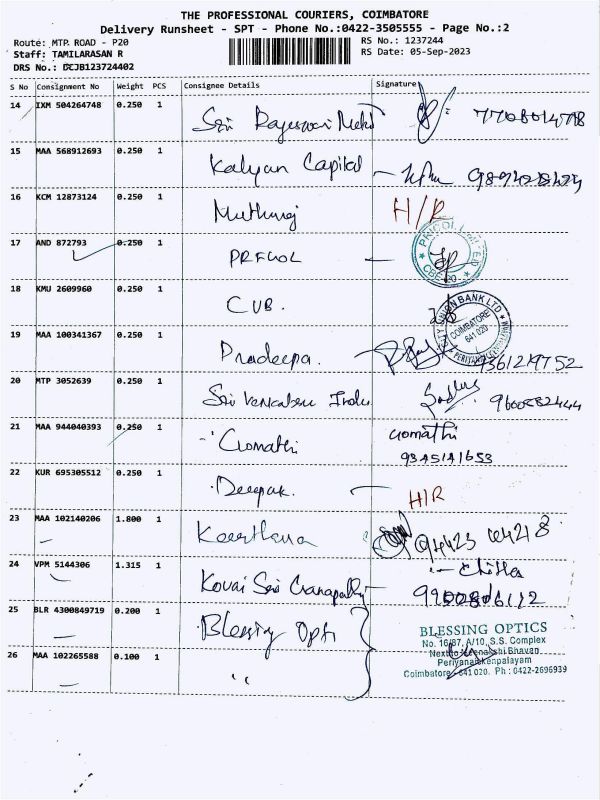 THE PROFESSIONAL COURIERS, COIMBATORE
Delivery Runsheet - SPT - Phone No.:0422-3505555 - Page No.:2
Route: MTP. ROAD - P20
RS No.: 1237244
Staff: TAMILARASAN R
RS Date: 05-Sep-2023
DRS No.: DCJB123724402
S No Consignment No Weight PCS Consignee Details Signature
14 IXM 504264748 0.250 1
Sri Rajeswari
15 MAA 568912693 0.250 1
Kalyan Capital
16 KCM 12873124 0.250 1
Muthuraj H/R
17 AND 872793 0.250 1
PRICOL
18 KMU 2609960 0.250 1
CUB.
CITY UNION BANK LTD
COIMBATORE
641 020
19 MAA 100341367 0.250 1
Pradeepa. 9361219752
20 MTP 3052639 0.250 1
Sri Venkatesu 9600882444
21 MAA 944040393 0.250 1
Gomathi Gomathi
9345141653
22 KUR 695305512 0.250 1
Deepak. H/R
23 MAA 102140206 1.800 1
Keerthana 94423 04218
24 VPM 5144306 1.315 1
Kovai Sri Ganapathy
25 BLR 4300849719 0.200 1
Blessing Opti
BLESSING OPTICS
No. 16/87, A/10, S.S. Complex
Next to Meenakshi Bhavan
Periyanaickenpalayam
Coimbatore - 641 020. Ph : 0422-2696939
26 MAA 102265588 0.100 1
"